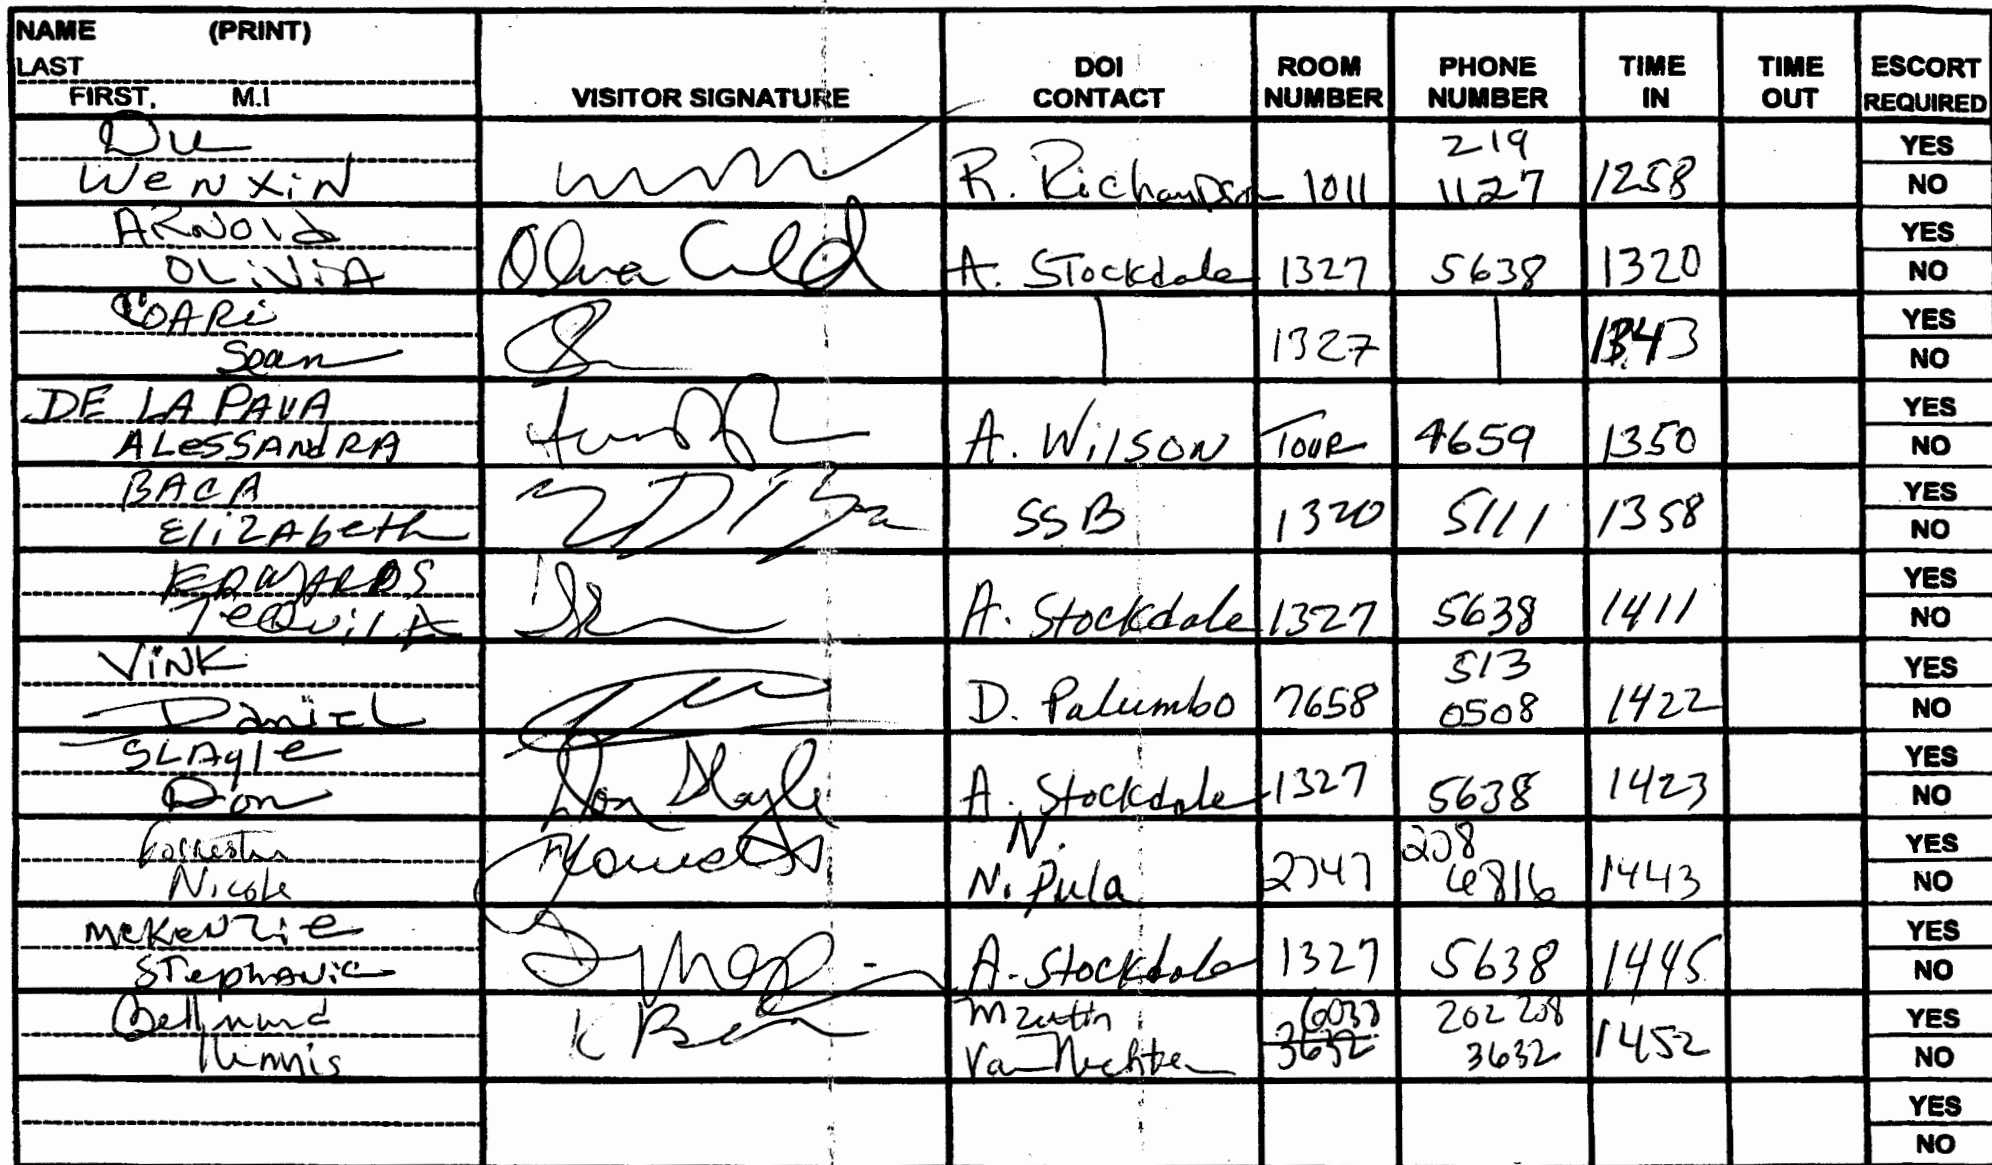 NAME (PRINT)
LAST
FIRST, M.I
VISITOR SIGNATURE
DOI CONTACT
ROOM NUMBER
PHONE NUMBER
TIME IN
TIME OUT
ESCORT REQUIRED
Du
WENXiN
R. Richardson 1011 219 1127 1258
YES
NO
ARNOld
OLiViA
A. Stockdale 1327 5638 1320
YES
NO
COARi
Sean
1327 1343
YES
NO
DE LA PAVA
ALESSANdRA
A. WilSON TOUR 4659 1350
YES
NO
BACA
EliZAbeth
SSB 1320 5111 1358
YES
NO
EDWARDS
TeQuilA
A. Stockdale 1327 5638 1411
YES
NO
ViNK
Daniel
D. Palumbo 7658 513 0508 1422
YES
NO
SLAgle
Don
Don Slagle
A. Stockdale 1327 5638 1423
YES
NO
Forrester
Nicole
N.
N. Pula 2747 208 6816 1443
YES
NO
McKenzie
STephanie
A. Stockdale 1327 5638 1445
YES
NO
3632 202 208 3632 1452
YES
NO
YES
NO